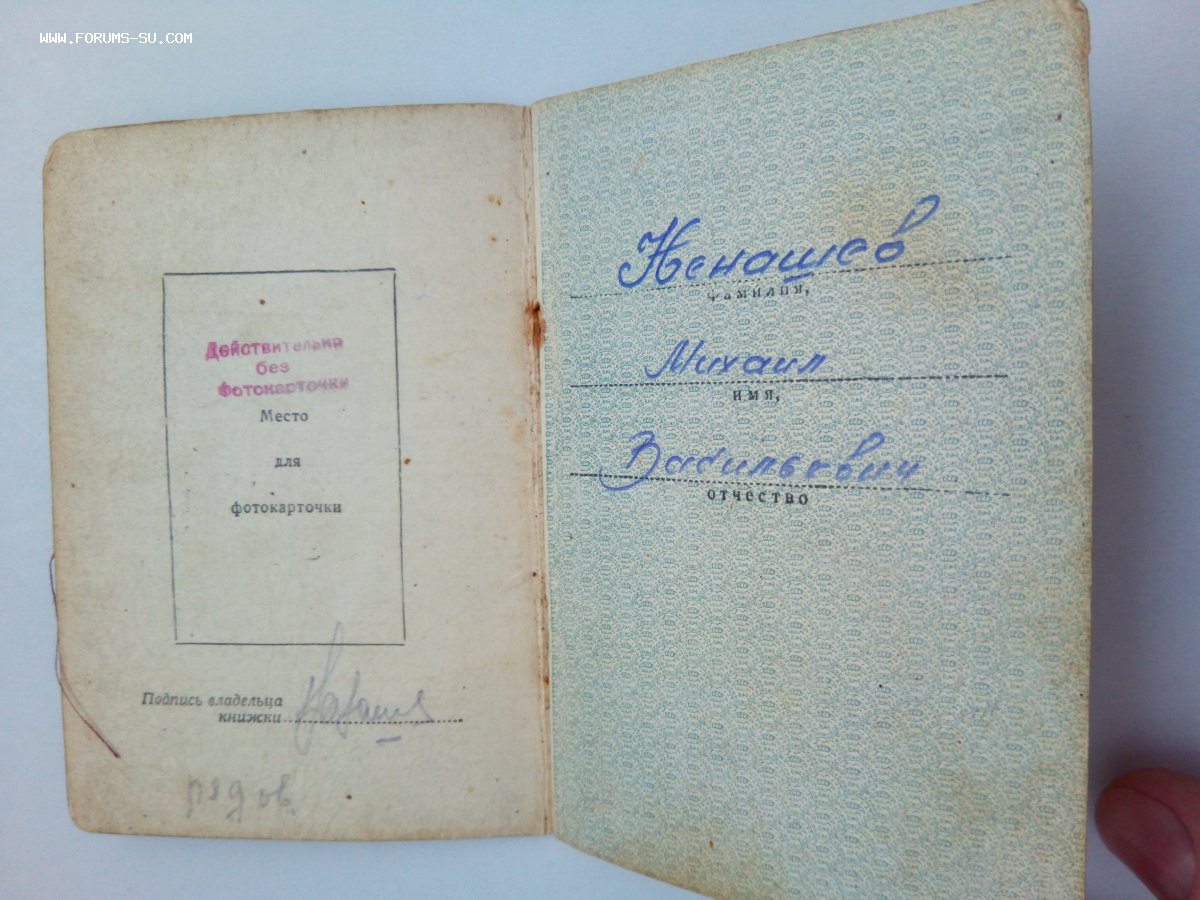 WWW.FORUMS-SU.COM
Действительна
без
фотокарточки
Место
для
фотокарточки
Подпись владельца
книжки
рядов
Ненашев
фамилия,
Михаил
имя,
Васильевич
отчество